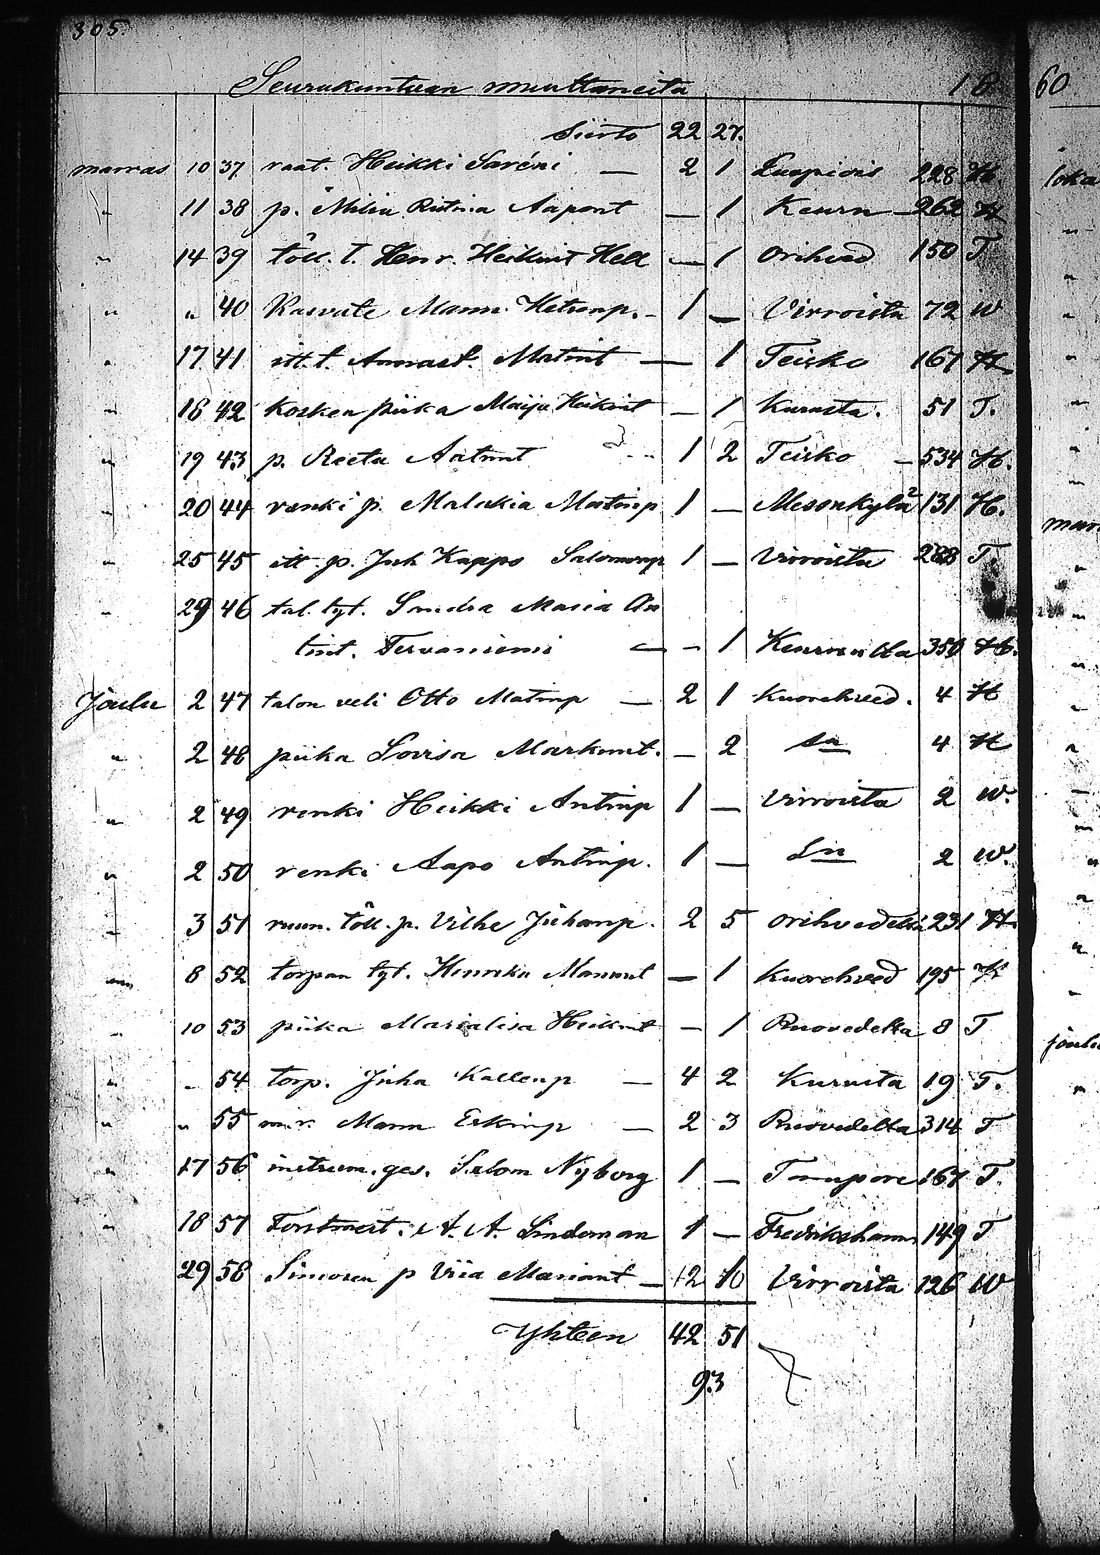 305.
Seurakuntaan muuttaneita 18 60
Siirto 22 27.
marras 10 37 raat. Heikki Saréni — 2 1 Luopiois 228 H.
" 11 38 p. Miliia Ristiina Aapont — 1 Keuru — 262 H
" 14 39 töll. t. Henr. Heikint Hell — 1 Orihved 150 T
" " 40 Kasvate Mann Hetremp. 1 — Virroista 72 W
" 17 41 itt. t. Annast. Matint — 1 Teisko 167 H
" 18 42 Kosken piika Maija Heikint — 1 Kurusta. 51 T.
" 19 43 p. Reeta Antint 1 2 Teisko — 534 H.
" 20 44 renki p. Malakia Matinp 1 — Messukylä 131 H.
" 25 45 itt. p. Juh Kappo Salomonp 1 — Virroista 288 T.
" 29 46 tal. tyt. Sandra Maria An
tint. Tervaniemi — 1 Keuruulta 350 H.
Joulu 2 47 talon veli Otto Matinp — 2 1 Kuorehved. 4 H
" 2 48 piika Lovisa Markunt. — 2 4 H
" 2 49 renki Heikki Antinp 1 — Virroista 2 W.
" 2 50 renki Aapo Antinp. 1 — 2 W.
" 3 51 ruun. töll. p. Vilhe Juhanp. 2 5 Orihvedeltä 231 H.
" 8 52 torpan tyt. Henrika Manunt — 1 Kuorehved 195 H
" 10 53 piika Marialisa Heikint — 1 Ruovedelta 8 T
" " 54 torp. Juha Kallenp — 4 2 Kurusta 19 T.
" " 55 m.r. Mann Erkinp — 2 3 Ruovedelta 314 T
" 17 56 instrum. ges. Salom Nyborg 1 — Tampere 167 T.
" 18 57 Forstmest. A. A. Lindeman 1 — Fredrikshamn 149 T
29 58 Simosen p Viia Mariant — 12 10 Virroista 126 W
Yhteen 42 51
93